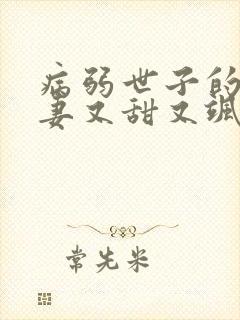 病弱世子的
妻又甜又飒
常先米